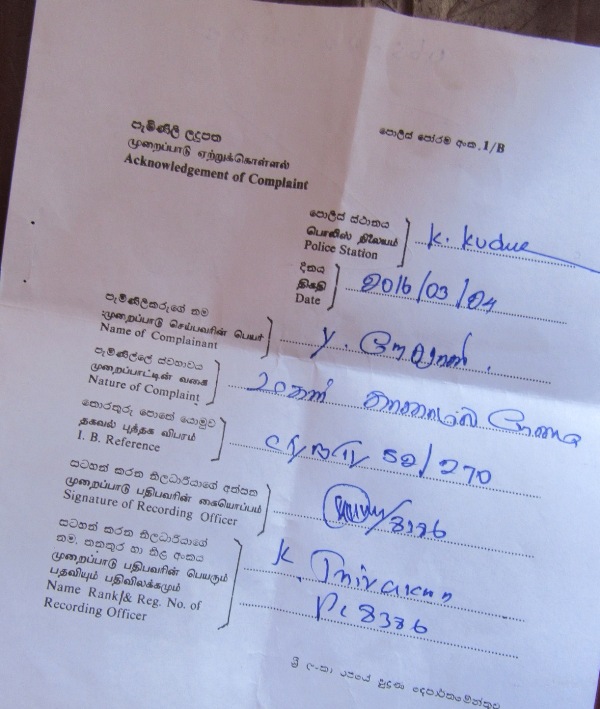 පැමිණිලි ලදුපත
முறைப்பாடு ஏற்றுக்கொள்ளல்
Acknowledgement of Complaint
පොලිස් පෝරම අංක. 1/B
පොලිස් ස්ථානය
பொலிஸ் நிலையம்
Police Station
K. Kudue
දිනය
திகதி
Date
2016/03/24
පැමිණිලිකරුගේ නම
முறைப்பாடு செய்பவரின் பெயர்
Name of Complainant
y.
පැමිණිල්ලේ ස්වභාවය
முறைப்பாட்டின் வகை
Nature of Complaint
තොරතුරු පොතේ යොමුව
தகவல் புத்தக விபரம்
I. B. Reference
52/270
සටහන් කරන නිලධාරියාගේ අත්සන
முறைப்பாடு பதிபவரின் கையொப்பம்
Signature of Recording Officer
/8386
සටහන් කරන නිලධාරියාගේ
නම, තනතුර හා නිළ අංකය
முறைப்பாடு பதிபவரின் பெயரும்
பதவியும் பதிவிலக்கமும்
Name Rank & Reg. No. of
Recording Officer
K.
Pc 8386
ශ්‍රී ලංකා රජයේ මුද්‍රණ දෙපාර්තමේන්තුව